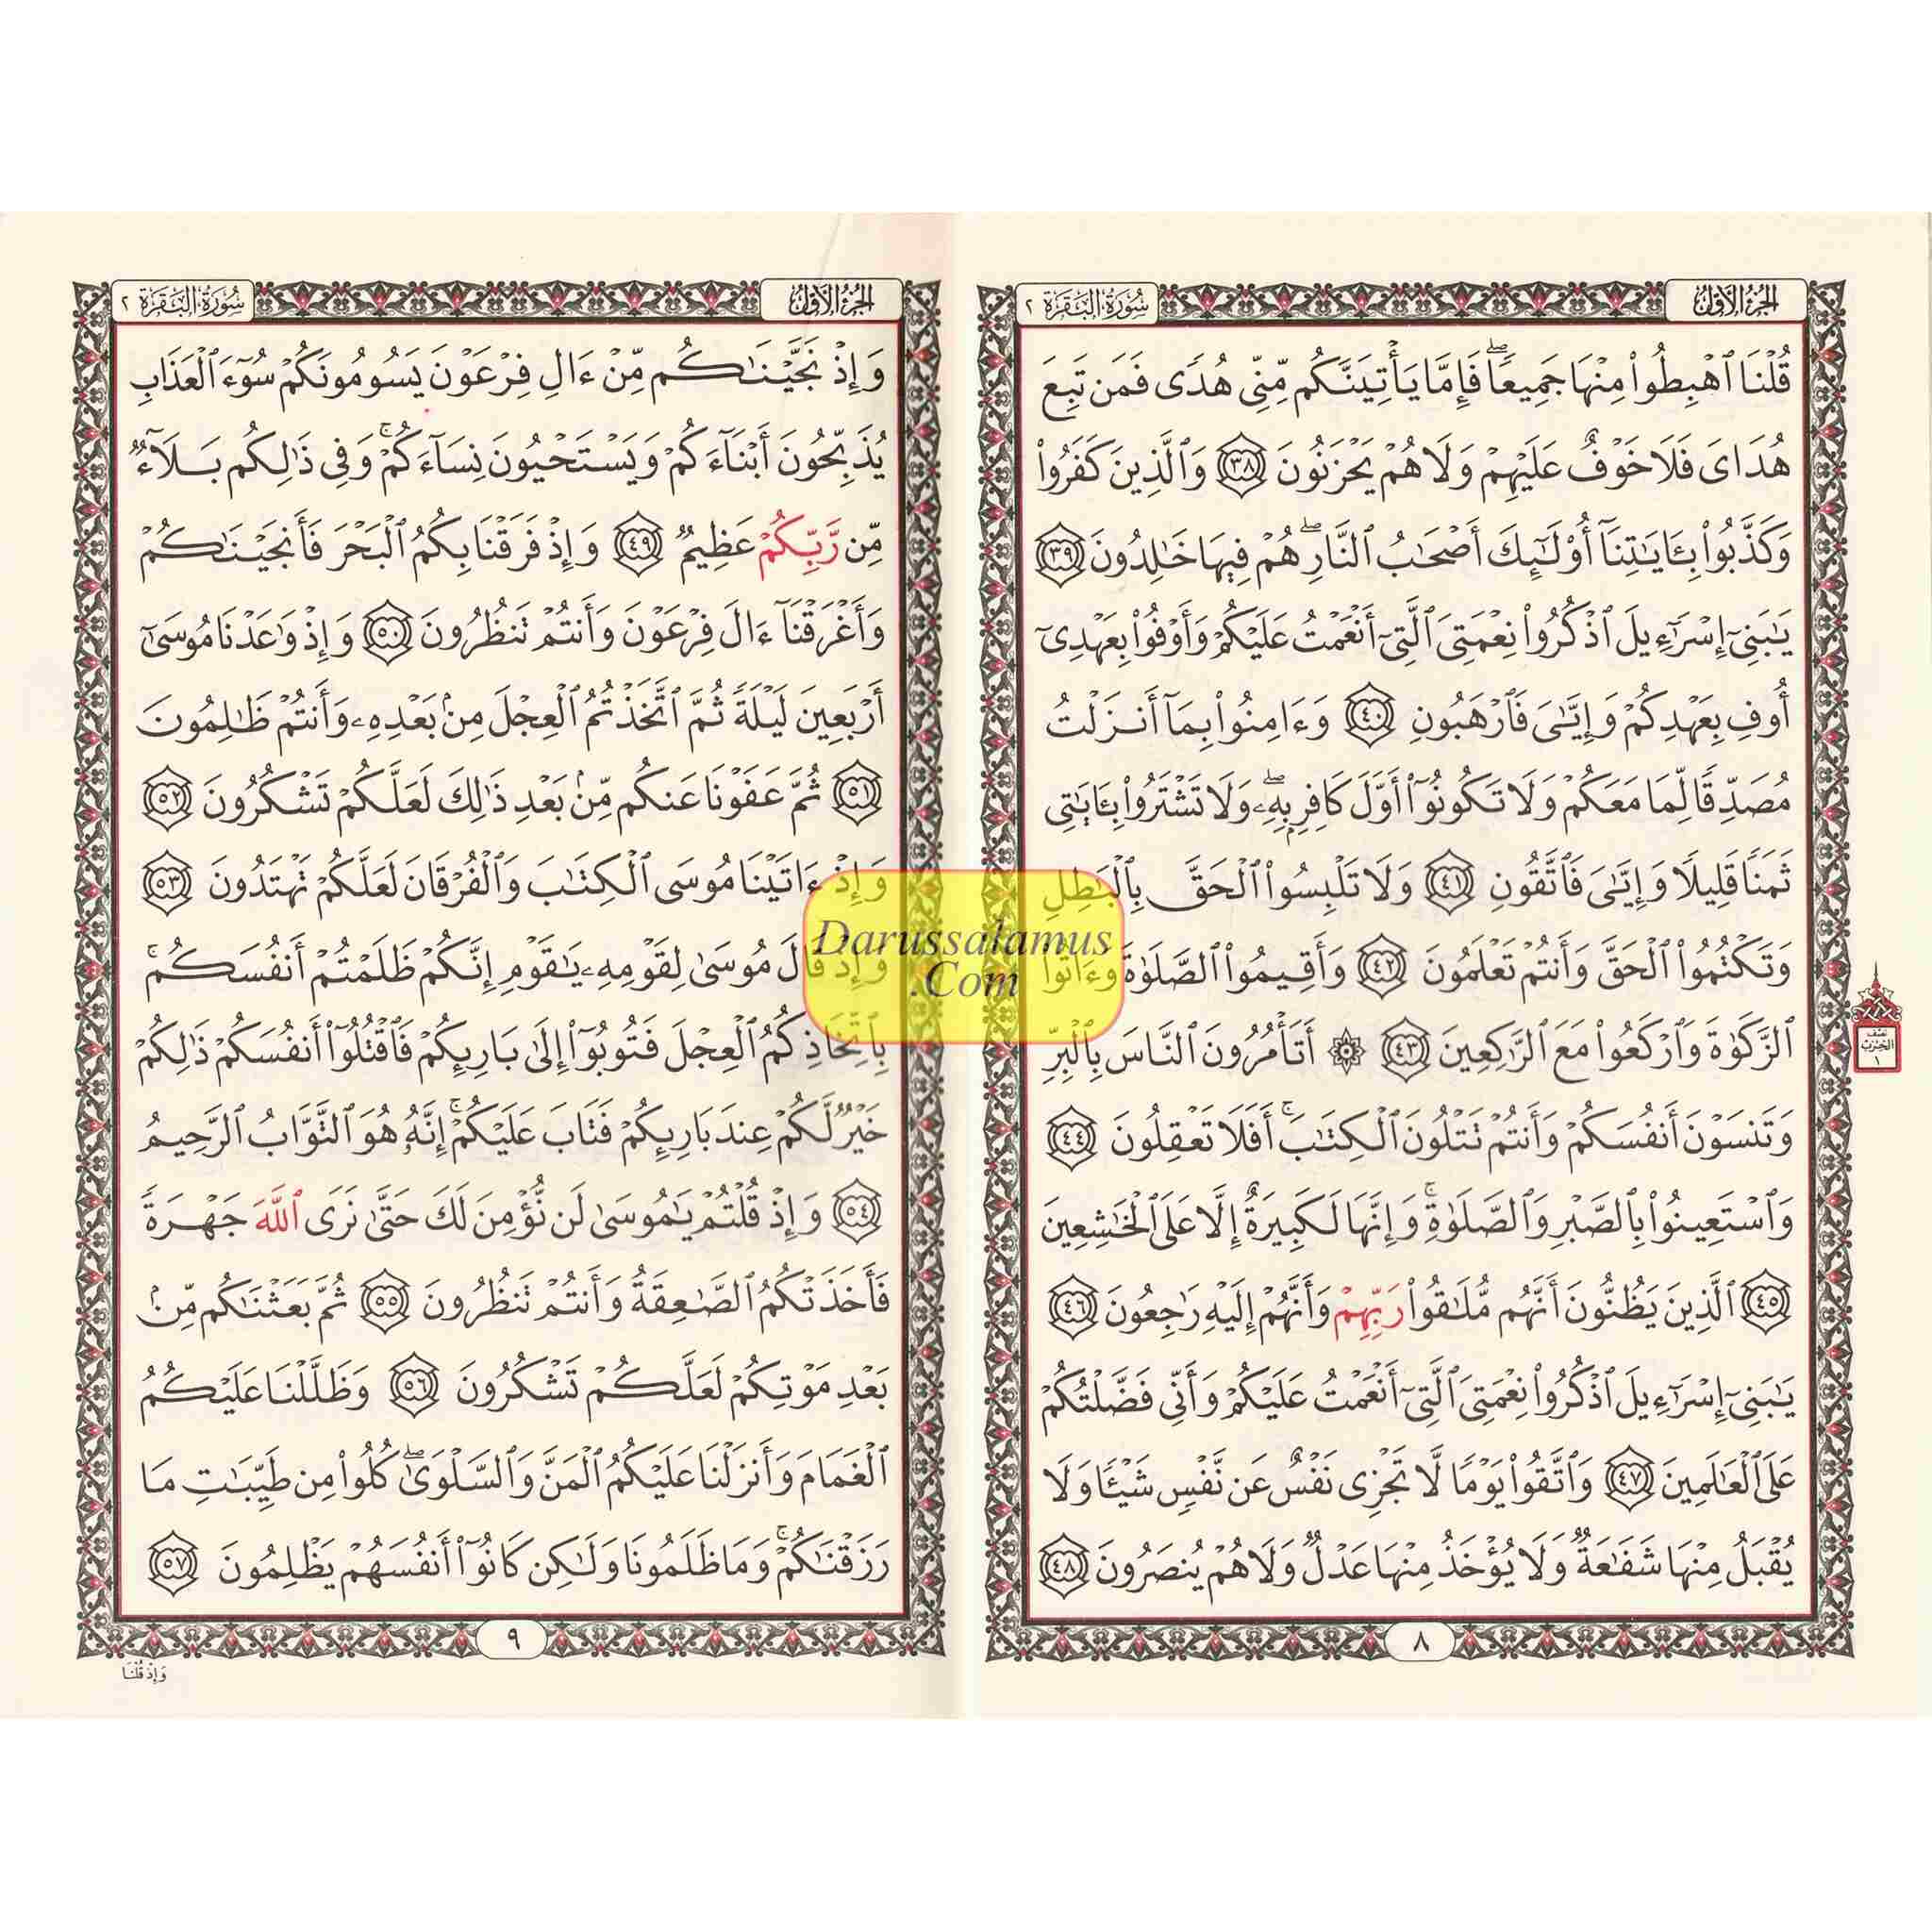 الجزء الأول
سورة البقرة ٢
قُلْنَا ٱهْبِطُوا۟ مِنْهَا جَمِيعًا ۖ فَإِمَّا يَأْتِيَنَّكُم مِّنِّى هُدًى فَمَن تَبِعَ
هُدَاىَ فَلَا خَوْفٌ عَلَيْهِمْ وَلَا هُمْ يَحْزَنُونَ ٣٨ وَٱلَّذِينَ كَفَرُوا۟
وَكَذَّبُوا۟ بِـَٔايَـٰتِنَآ أُو۟لَـٰٓئِكَ أَصْحَـٰبُ ٱلنَّارِ ۖ هُمْ فِيهَا خَـٰلِدُونَ ٣٩
يَـٰبَنِىٓ إِسْرَٰٓءِيلَ ٱذْكُرُوا۟ نِعْمَتِىَ ٱلَّتِىٓ أَنْعَمْتُ عَلَيْكُمْ وَأَوْفُوا۟ بِعَهْدِىٓ
أُوفِ بِعَهْدِكُمْ وَإِيَّـٰىَ فَٱرْهَبُونِ ٤٠ وَءَامِنُوا۟ بِمَآ أَنزَلْتُ
مُصَدِّقًا لِّمَا مَعَكُمْ وَلَا تَكُونُوٓا۟ أَوَّلَ كَافِرٍۭ بِهِۦ ۖ وَلَا تَشْتَرُوا۟ بِـَٔايَـٰتِى
ثَمَنًا قَلِيلًا وَإِيَّـٰىَ فَٱتَّقُونِ ٤١ وَلَا تَلْبِسُوا۟ ٱلْحَقَّ بِٱلْبَـٰطِلِ
وَتَكْتُمُوا۟ ٱلْحَقَّ وَأَنتُمْ تَعْلَمُونَ ٤٢ وَأَقِيمُوا۟ ٱلصَّلَوٰةَ وَءَاتُوا۟
ٱلزَّكَوٰةَ وَٱرْكَعُوا۟ مَعَ ٱلرَّٰكِعِينَ ٤٣ ۞ أَتَأْمُرُونَ ٱلنَّاسَ بِٱلْبِرِّ
وَتَنسَوْنَ أَنفُسَكُمْ وَأَنتُمْ تَتْلُونَ ٱلْكِتَـٰبَ ۚ أَفَلَا تَعْقِلُونَ ٤٤
وَٱسْتَعِينُوا۟ بِٱلصَّبْرِ وَٱلصَّلَوٰةِ ۚ وَإِنَّهَا لَكَبِيرَةٌ إِلَّا عَلَى ٱلْخَـٰشِعِينَ
٤٥ ٱلَّذِينَ يَظُنُّونَ أَنَّهُم مُّلَـٰقُوا۟ رَبِّهِمْ وَأَنَّهُمْ إِلَيْهِ رَٰجِعُونَ ٤٦
يَـٰبَنِىٓ إِسْرَٰٓءِيلَ ٱذْكُرُوا۟ نِعْمَتِىَ ٱلَّتِىٓ أَنْعَمْتُ عَلَيْكُمْ وَأَنِّى فَضَّلْتُكُمْ
عَلَى ٱلْعَـٰلَمِينَ ٤٧ وَٱتَّقُوا۟ يَوْمًا لَّا تَجْزِى نَفْسٌ عَن نَّفْسٍ شَيْـًٔا وَلَا
يُقْبَلُ مِنْهَا شَفَـٰعَةٌ وَلَا يُؤْخَذُ مِنْهَا عَدْلٌ وَلَا هُمْ يُنصَرُونَ ٤٨
٨
نصف
الحزب
١
الجزء الأول
سورة البقرة ٢
وَإِذْ نَجَّيْنَـٰكُم مِّنْ ءَالِ فِرْعَوْنَ يَسُومُونَكُمْ سُوٓءَ ٱلْعَذَابِ
يُذَبِّحُونَ أَبْنَآءَكُمْ وَيَسْتَحْيُونَ نِسَآءَكُمْ ۚ وَفِى ذَٰلِكُم بَلَآءٌ
مِّن رَّبِّكُمْ عَظِيمٌ ٤٩ وَإِذْ فَرَقْنَا بِكُمُ ٱلْبَحْرَ فَأَنجَيْنَـٰكُمْ
وَأَغْرَقْنَآ ءَالَ فِرْعَوْنَ وَأَنتُمْ تَنظُرُونَ ٥٠ وَإِذْ وَٰعَدْنَا مُوسَىٰٓ
أَرْبَعِينَ لَيْلَةً ثُمَّ ٱتَّخَذْتُمُ ٱلْعِجْلَ مِنۢ بَعْدِهِۦ وَأَنتُمْ ظَـٰلِمُونَ
٥١ ثُمَّ عَفَوْنَا عَنكُم مِّنۢ بَعْدِ ذَٰلِكَ لَعَلَّكُمْ تَشْكُرُونَ ٥٢
وَإِذْ ءَاتَيْنَا مُوسَى ٱلْكِتَـٰبَ وَٱلْفُرْقَانَ لَعَلَّكُمْ تَهْتَدُونَ ٥٣
وَإِذْ قَالَ مُوسَىٰ لِقَوْمِهِۦ يَـٰقَوْمِ إِنَّكُمْ ظَلَمْتُمْ أَنفُسَكُم
بِٱتِّخَاذِكُمُ ٱلْعِجْلَ فَتُوبُوٓا۟ إِلَىٰ بَارِئِكُمْ فَٱقْتُلُوٓا۟ أَنفُسَكُمْ ذَٰلِكُمْ
خَيْرٌ لَّكُمْ عِندَ بَارِئِكُمْ فَتَابَ عَلَيْكُمْ ۚ إِنَّهُۥ هُوَ ٱلتَّوَّابُ ٱلرَّحِيمُ
٥٤ وَإِذْ قُلْتُمْ يَـٰمُوسَىٰ لَن نُّؤْمِنَ لَكَ حَتَّىٰ نَرَى ٱللَّهَ جَهْرَةً
فَأَخَذَتْكُمُ ٱلصَّـٰعِقَةُ وَأَنتُمْ تَنظُرُونَ ٥٥ ثُمَّ بَعَثْنَـٰكُم مِّنۢ
بَعْدِ مَوْتِكُمْ لَعَلَّكُمْ تَشْكُرُونَ ٥٦ وَظَلَّلْنَا عَلَيْكُمُ
ٱلْغَمَامَ وَأَنزَلْنَا عَلَيْكُمُ ٱلْمَنَّ وَٱلسَّلْوَىٰ ۖ كُلُوا۟ مِن طَيِّبَـٰتِ مَا
رَزَقْنَـٰكُمْ ۚ وَمَا ظَلَمُونَا وَلَـٰكِن كَانُوٓا۟ أَنفُسَهُمْ يَظْلِمُونَ ٥٧
٩
وَإِذْ قُلْنَا
Darussalamus
.Com